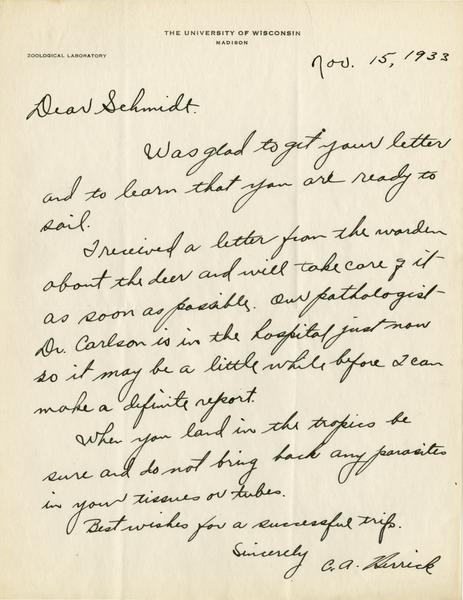 THE UNIVERSITY OF WISCONSIN
MADISON
ZOOLOGICAL LABORATORY
Nov. 15, 1933
Dear Schmidt.
Was glad to get your letter
and to learn that you are ready to
sail.
I received a letter from the warden
about the deer and will take care of it
as soon as possible. Our pathologist
Dr. Carlson is in the hospital just now
so it may be a little while before I can
make a definite report.
When you land in the tropics be
sure and do not bring back any parasites
in your tissues or tubes.
Best wishes for a successful trip.
Sincerely
C. A. Herrick